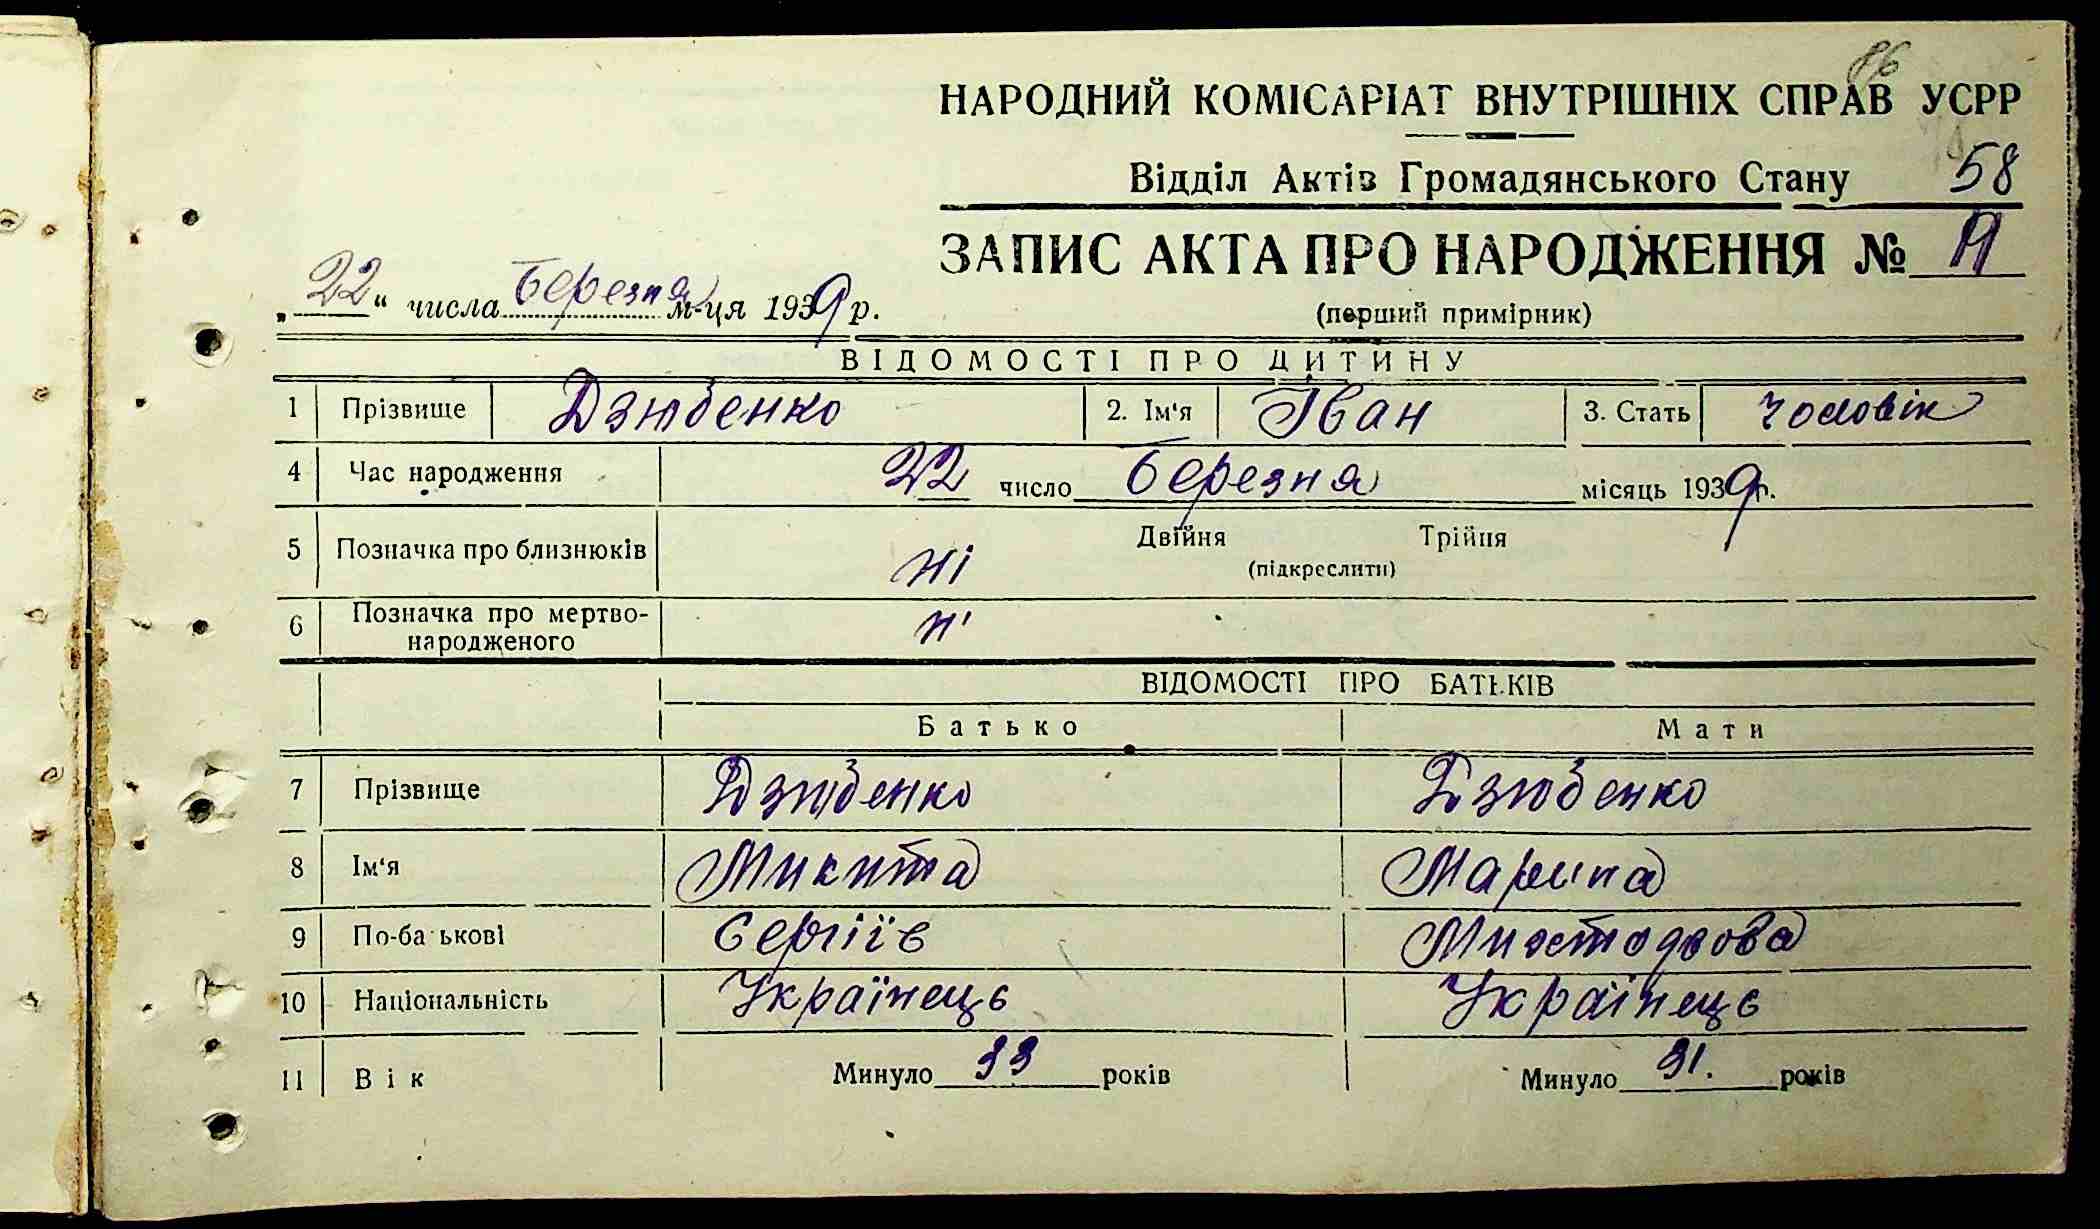 86
НАРОДНИЙ КОМІСАРІАТ ВНУТРІШНІХ СПРАВ УСРР
Відділ Актів Громадянського Стану 58
ЗАПИС АКТА ПРО НАРОДЖЕННЯ №
„22“ числа Березня м-ця 1939 р.
(перший примірник)
ВІДОМОСТІ ПРО ДИТИНУ
1 Прізвище Дзюбенко 2. Ім'я Іван 3. Стать чоловік
4 Час народження 22 число Березня місяць 1939 р.
5 Позначка про близнюків ні Двійня Трійня
(підкреслити)
6 Позначка про мертво-
народженого ні
ВІДОМОСТІ ПРО БАТЬКІВ
Батько Мати
7 Прізвище Дзюбенко Дзюбенко
8 Ім'я Микита Марина
9 По-батькові Сергіїв
10 Національність Українець Українець
11 Вік Минуло 33 років Минуло 31. років